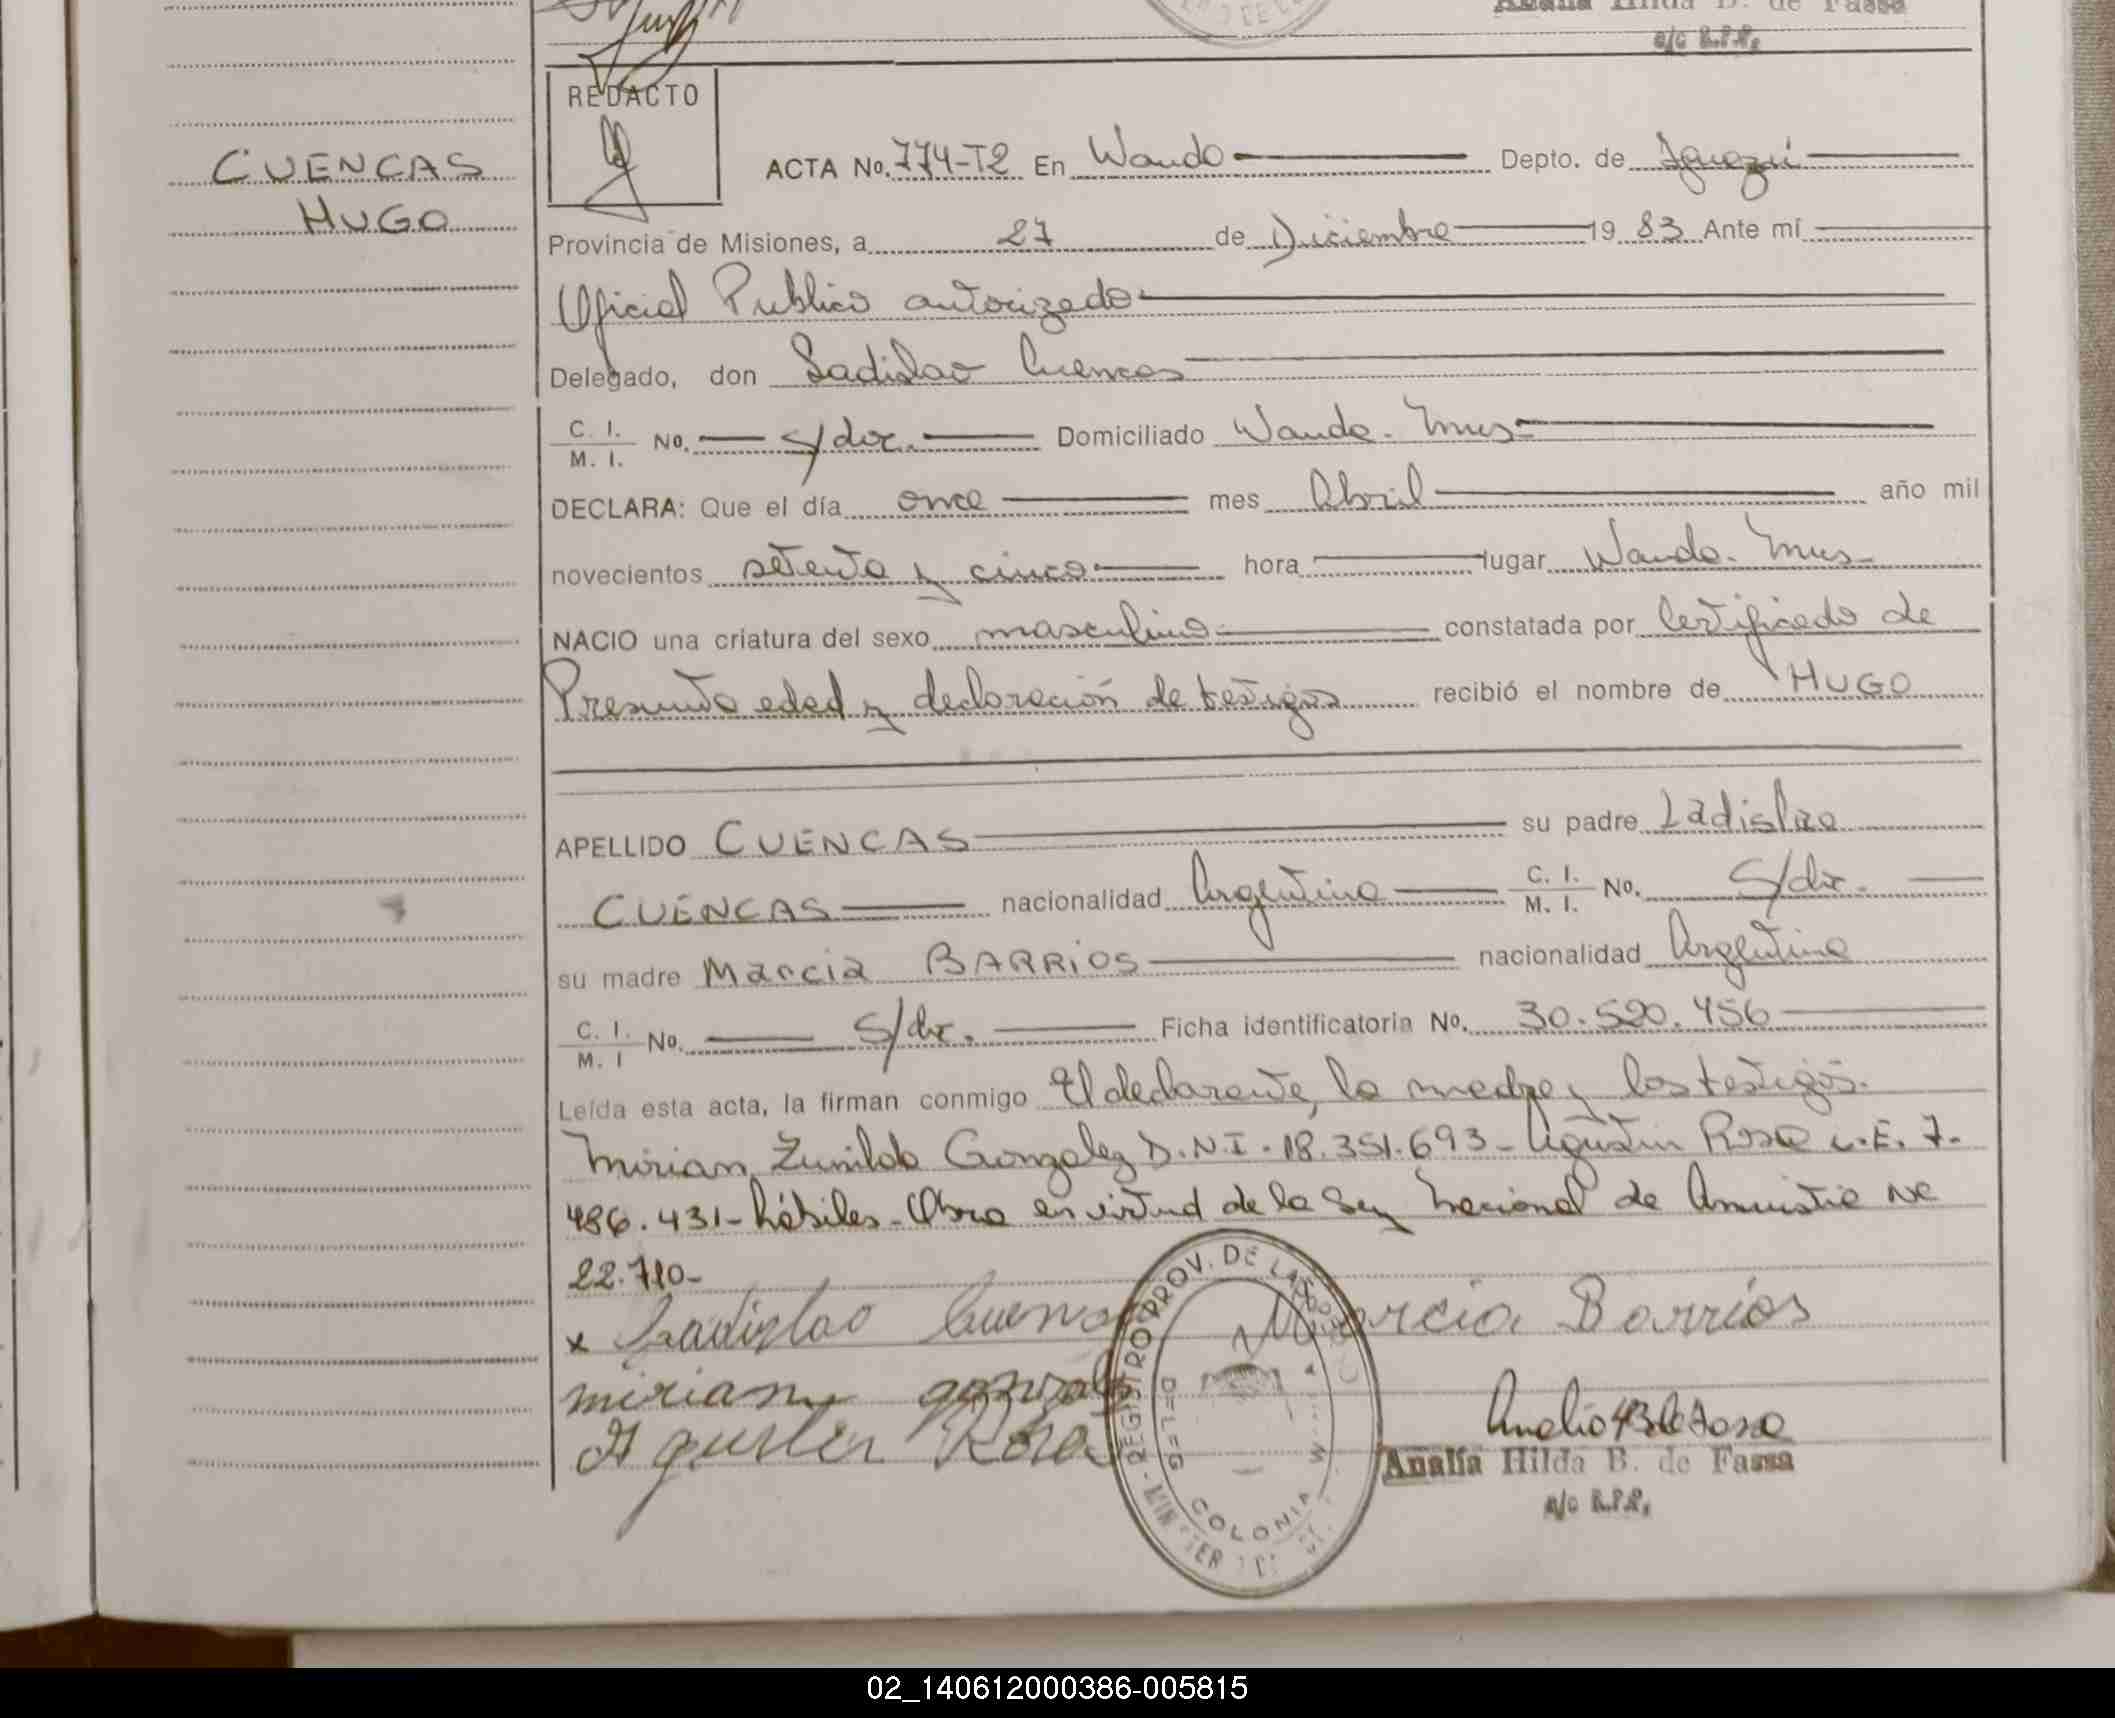 Analía Hilda B. de Fassa
a/c R.P.P.
REDACTO
CUENCAS
HUGO
ACTA No. 774-T2 En Wanda Depto. de Iguazú
Provincia de Misiones, a 27 de Diciembre 19 83 Ante mí
Oficial Publico autorizado
Delegado, don Ladislao Cuencas
C. I. M. I. No. s/doc. Domiciliado Wanda. Mnes
DECLARA: Que el día once mes Abril año mil
novecientos setenta y cinco hora lugar Wanda. Mnes
NACIO una criatura del sexo masculino constatada por Certificado de
Presunta edad y declaración de testigos recibió el nombre de HUGO
APELLIDO CUENCAS su padre Ladislao
CUENCAS nacionalidad Argentina C. I. M. I. No. s/doc.
su madre Marcia BARRIOS nacionalidad Argentina
C. I. M. I No. s/doc. Ficha identificatoria No. 30.520.456
Leída esta acta, la firman conmigo El declarante, la madre y los testigos.
Mirian Zunilda Gonzalez D.N.I. 18.351.693- Agustin Rosa L.E. 7.
486.431- hábiles- Obra en virtud de la Ley Nacional de Amnistia Nº
22.710-
x Ladislao Cuencas Marcia Barrios
mirian gonzalez
Agustin Rosa
Analía Hilda B. de Fassa
a/c R.P.P.
REGISTRO PROV. DE LAS
COLONIA
02_140612000386-005815